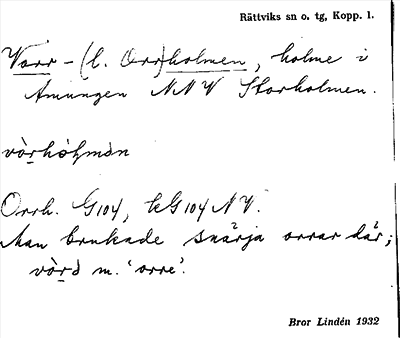 Rättviks sn o. tg, Kopp. l.
Vorr - (l. Orr)holmen, holme i
Amungen NNV Storholmen.
vòrhòḷmən
Orrh. G104, kG104NV.
Man brukade snärja orrar där;
vòrd m. 'orre'.
Bror Lindén 1932